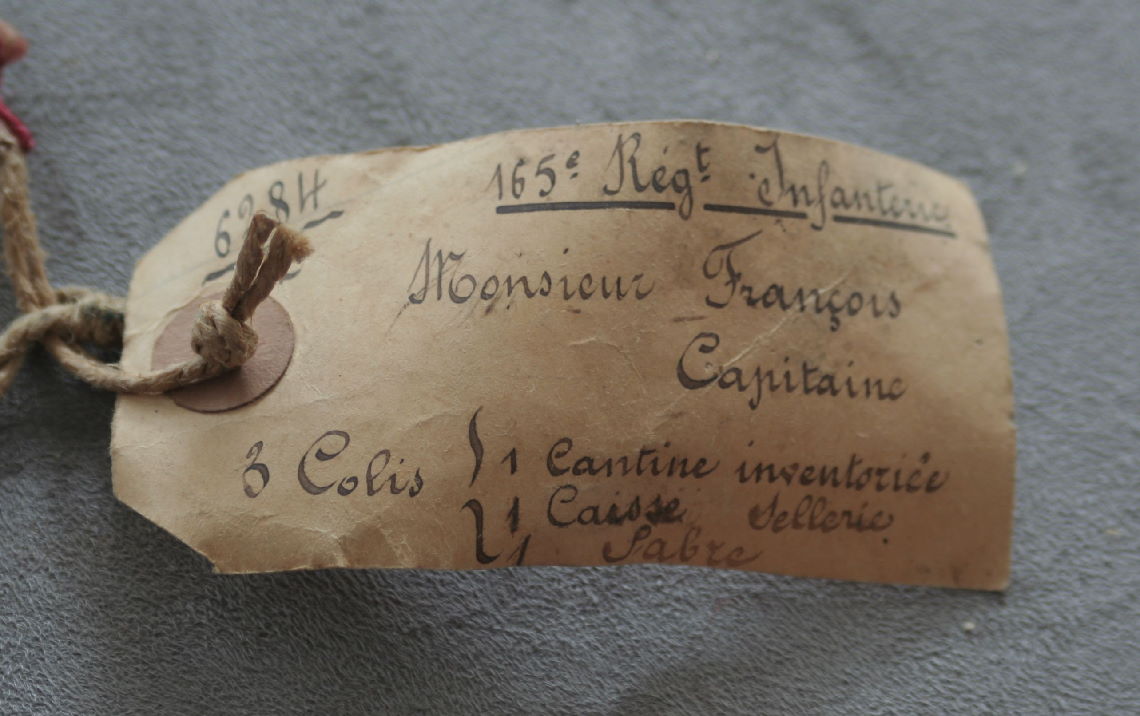 6284
165e Régt Infanterie
Monsieur François
Capitaine
3 Colis { 1 Cantine inventoriée
1 Caisse Sellerie
1 Sabre